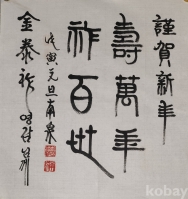 謹賀新年
壽萬年
祚百世
戊寅元旦南泉
金泰祚
kobay